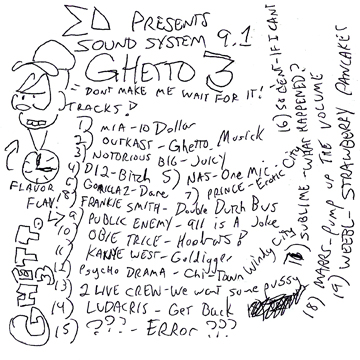 ΣD PRESENTS
SOUND SYSTEM 9.1
GHETTO 3
"DONT MAKE ME WAIT FOR IT!"
TRACKS!
1) MIA-10 Dollar
2) OUTKAST-Ghetto Musick
3) NOTORIOUS BIG-JUICY
4) D12-Bitch 5) NAS-ONE MIC-
6) GORILLAZ-Dare 7) PRINCE-Erotic City
8) FRANKIE SMITH-Double Dutch Bus
9) PUBLIC ENEMY-911 IS A Joke
10) OBIE TRICE-Hoobats!
11) KANYE WEST-Goldigger
12) PSYCHO DRAMA-Chi Town Windy City
13) 2 LIVE CREW-We want some pussy
14) LUDACRIS-Get Back
15) ???-ERROR???
FLAVOR
FLAV!
GHETTO.
16) SO DENT-IF I CANT
17) SUBLIME-WHAT HAPPENED?
18) MARRS-PUMP UP THE VOLUME
19) WEEBL-STRAWBERRY PANCAKES